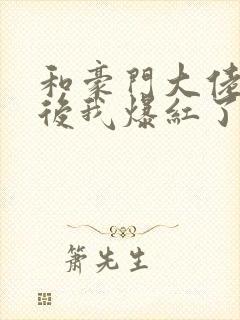 和豪門大佬
後我爆紅了
簫先生